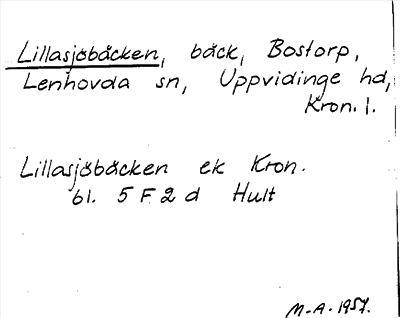 Lillasjöbäcken, bäck, Bostorp,
Lenhovda sn, Uppvidinge hd,
Kron. l.
Lillasjöbäcken ek Kron.
bl. 5 F 2 d Hult
M-A. 1957.